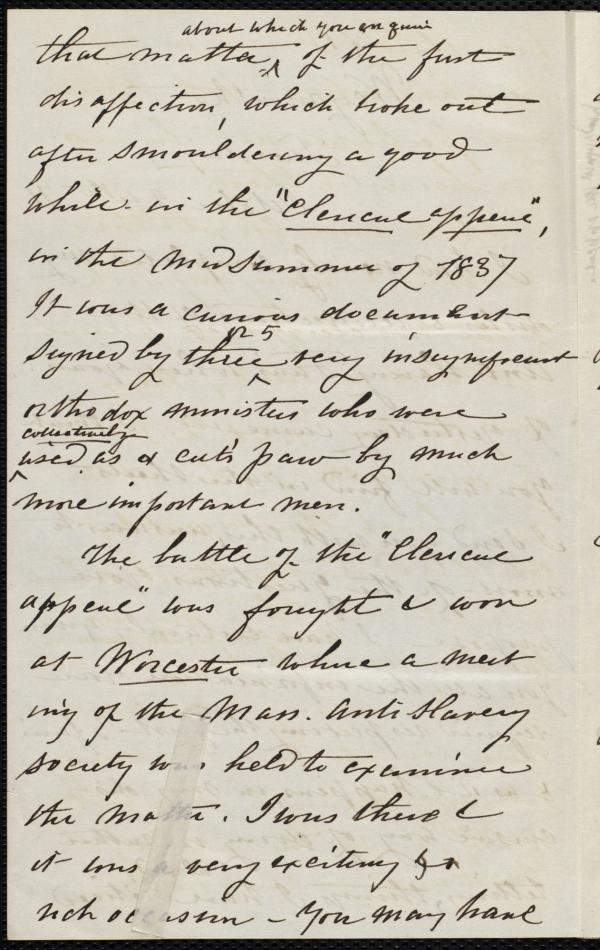 about which you enquire
that matter ^ of the first
disaffection, which broke out
after smouldering a good
while in the "Clerical appeal",
in the midsummer of 1837
It was a curious document
or 5
signed by three ^ very insignificant
orthodox ministers who were
collectively
^ used as a cat's paw by much
more important men.
The battle of the "Clerical
appeal" was fought & won
at Worcester where a meet
ing of the Mass. Anti Slavery
society was held to examine
the matter. I was there &
it was a very exciting &
rich occasion - You may have